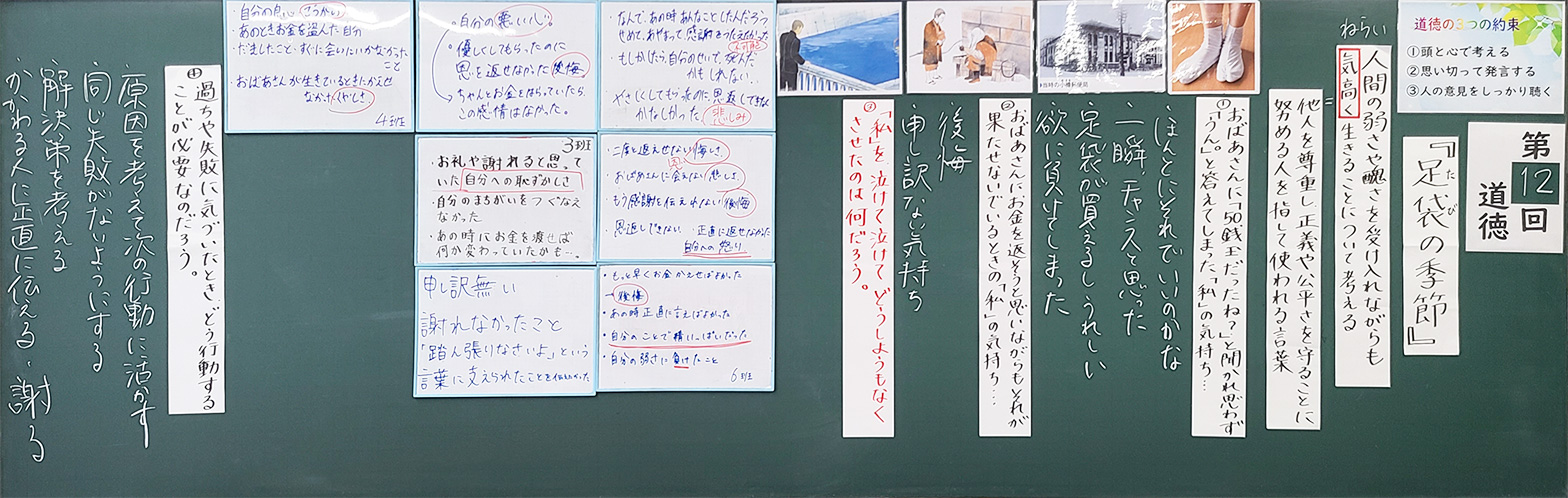 道徳の3つの約束
①頭と心で考える
②思い切って発言する
③人の意見をしっかり聴く
第12回
道徳
『足袋の季節』
たび
ねらい
人間の弱さや醜さを受け入れながらも
気高く生きることについて考える
他人を尊重し正義や公平さを守ることに
努める人を指して使われる言葉
①おばあさんに「50銭玉だったね?」と聞かれ思わず
「うん。」と答えてしまった「私」の気持ち…
ほんとにそれでいいのかな
一瞬、チャンスと思った
足袋が買えるしうれしい
欲に負けてしまった
当時の小樽郵便局
②おばあさんにお金を返そうと思いながらもそれが
果たせないでいるときの「私」の気持ち…
後悔
申し訳ない気持ち
③「私」を泣けて泣けてどうしようもなく
させたのは何だろう。
なんで、あの時あんなことしたんだろう
せめて、あやまって、感謝をつたえたかった
もしかしたら、自分のせいで、死んだ
かもしれない…
やさしくしてもらったのに、恩返しできな
かなしかった。悲しみ
二度と返えせない悔しさ
恩
おばあさんに会えない悲しさ
もう感謝を伝えれない後悔
恩返しできない 正直に返せなかった
自分への怒り
もっと早くお金かえせばよかった
→後悔
あの時正直に言えばよかった
自分のことで精いっぱいだった
自分の弱さに負けたこと
6班
自分の悪い心。
優しくしてもらったのに
恩を返せなかった後悔
ちゃんとお金をはらっていたら、
この感情はなかった。
3班
お礼や謝れると思って
いた自分への恥ずかしさ
自分のまちがいをつぐなえ
なかった
あの時にお金を渡せば
何か変わっていたかも…。
申し訳無い
謝れなかったこと
「踏ん張りなさいよ」という
言葉に支えられたことを伝えたかった
自分の良心
あのときお金を盗んだ自分
だましたこと・すぐに会いたいかなかった
こと
おばあさんが生きているときにかえせ
なかったくやしさ
4班
④過ちや失敗に気づいたとき、どう行動する
ことが必要なのだろう。
原因を考えて次の行動に活かす
同じ失敗がないようにする
解決策を考える
かかわる人に正直に伝える・謝る